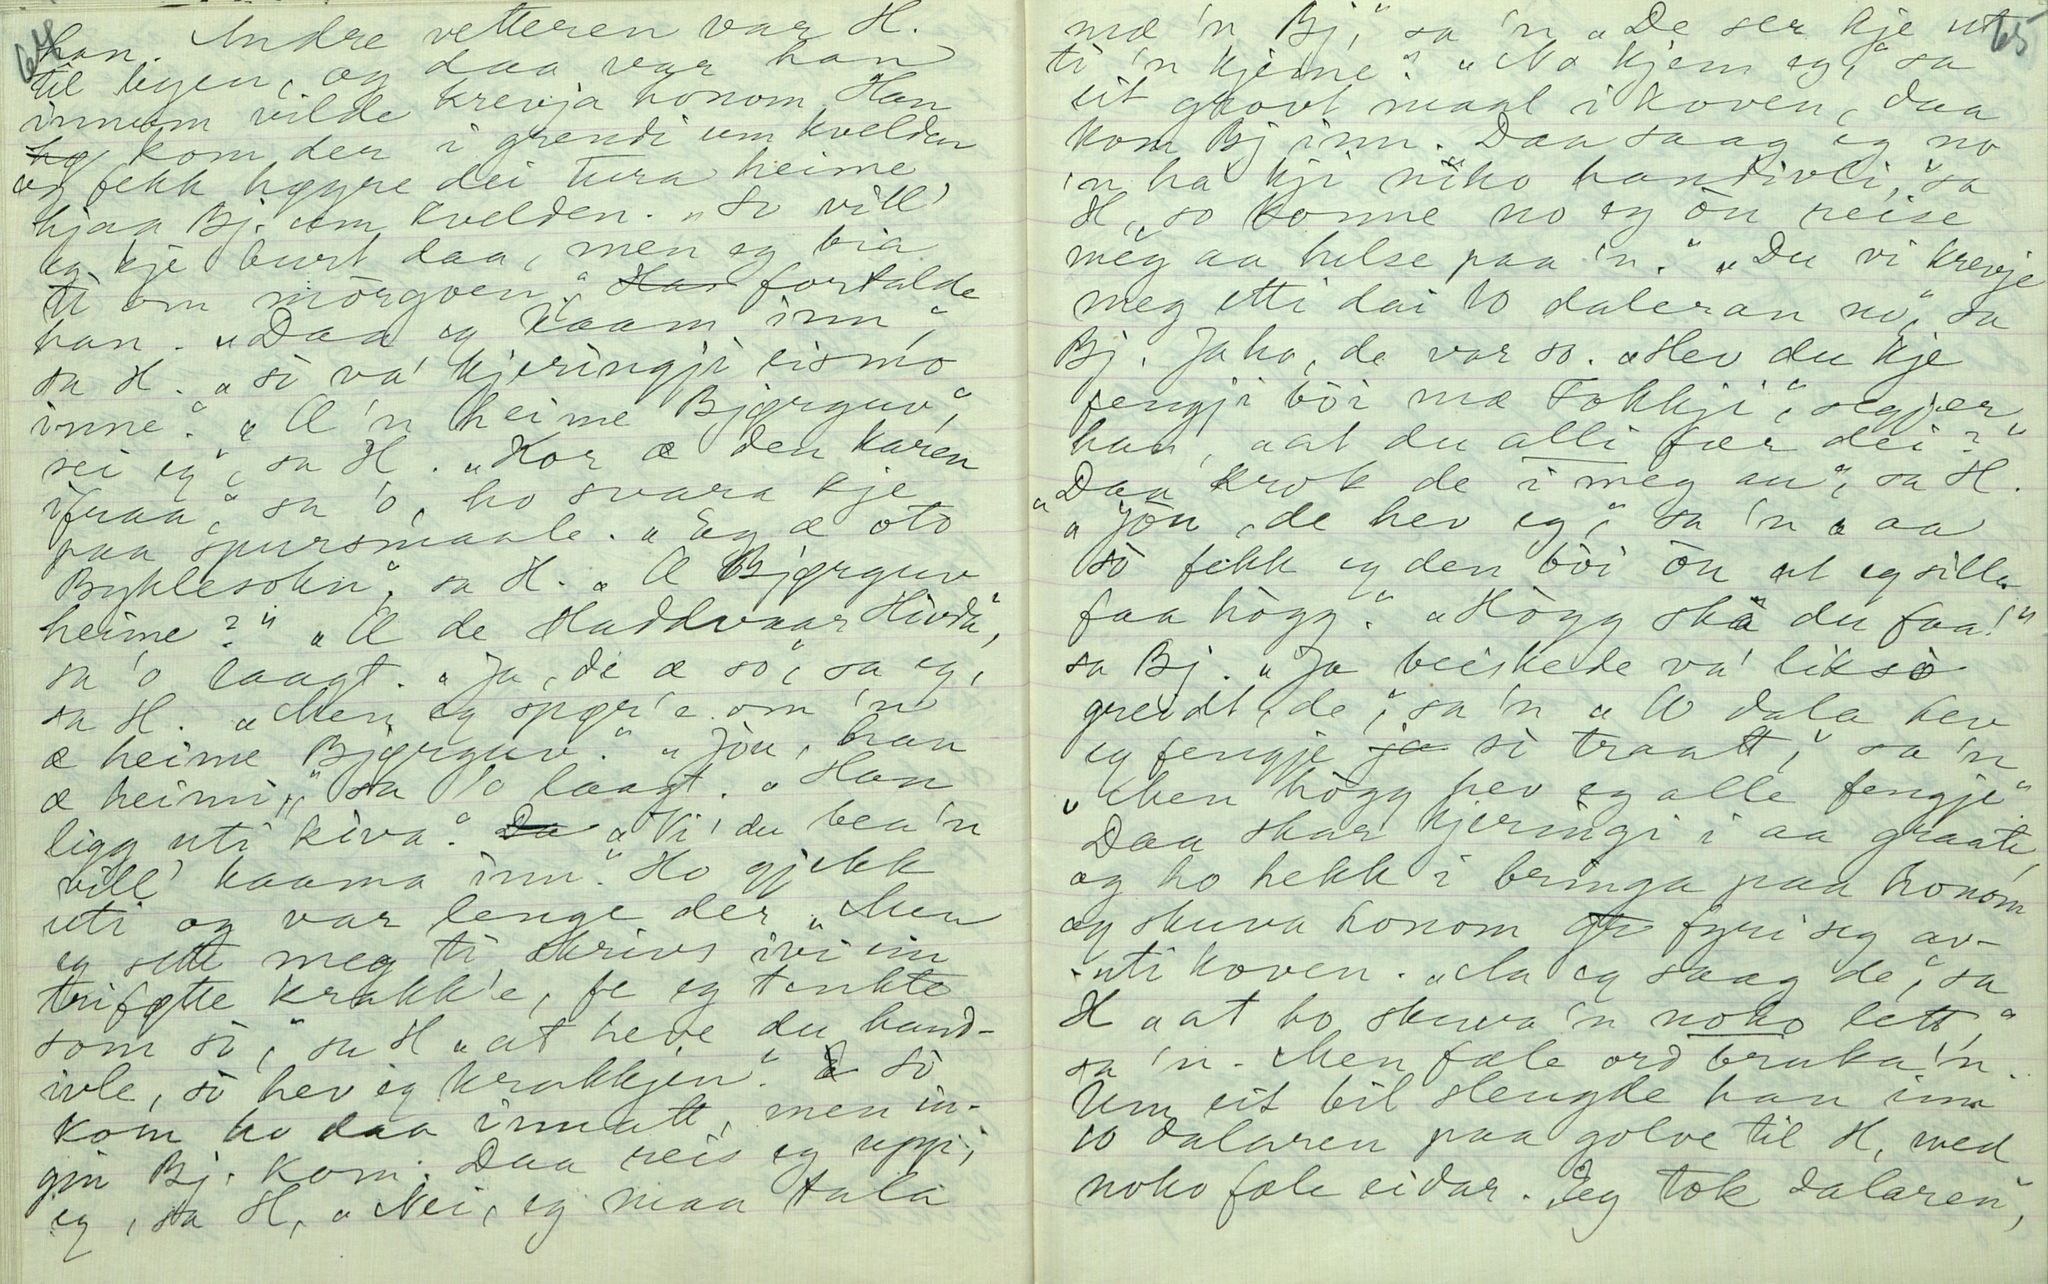 64
han. Andre vetteren var H.
til byen, og daa var han
innum vilde krevja honom. Han
kom der i grendi um kvelden
og fekk høyre dei tura heime
hjaa Bj. um kvelden. „So vill'
eg kje burt daa, men eg bia
ti om mòrgoen." Han fortalde
han. „Daa eg kaam inn",
sa H. „sò va' kjeringji eismo
inne." „Æ 'n heime Bjørguv",
sei eg", sa H. „Kor æ den karen
ifraa," sa 'o, ho svara kje
paa spursmaale. „Eg æ oto
Byklesokn", sa H. „Æ Bjørguv
heime?" „Æ de Haddvaar Hivda",
sa 'o laagt. „Ja, de æ so", sa eg,
sa H. „Men eg spør'e om 'n
æ heime Bjørguv." „Jòu, han
æ heimi," sa 'o laagt. „Han
ligg uti kòva." Da „Vi' du bea'n
vill' kaama inn." Ho gjekk
uti og var lenge der „Men
eg sette meg ti skrivs ivi ein
triføtte krakk'e, fe eg tenkte
som sò," sa H „at heve du hand-
ivle, sò hev eg krakkjen". Sò
kom ho daa innatt, men in-
gin Bj. kom. Daa reis eg uppi,
eg, sa H, „Nei, eg maa tala
65
mæ 'n Bj," sa 'n „De ser kje ut
ti 'n kjeme". „No kjem eg," sa
eit grovt maal i koven, daa
kom Bj inn. Daa saag eg no
'n ha kji niko handivli," sa
H, so konne no eg òu reise
meg aa helse paa 'n." „Du vi krevje
meg etti dai 10 daleran no", sa
Bj. Jaha, de var so. „Hev du kje
fengji bòi mæ Tokkji", segjer
han, „at du alli fær dei?"
„Daa krok de i meg au", sa H.
„Jòu, de hev eg," sa 'n „aa
sò fekk eg den bòi òu at eg sille
faa hògg." „Hògg ska du faa!"
sa Bj. „Ja beiskede va' liksò
greidt, de," sa 'n „10 dala hev
eg fengje ja sò traatt," sa 'n
„Men hògg hev eg alle fengje"
Daa skar kjeringi i aa graate,
og ho hekk i bringa paa honom
og skuva honom fyri seg av-
uti koven. „Aa eg saag de", sa
H „at ho skuva 'n noko lett,"
sa 'n. Men fæle ord bruka 'n.
Um eit bil slengde han inn
10 dalaren paa golve til H, med
noko fæle eidar. Eg tok dalaren",